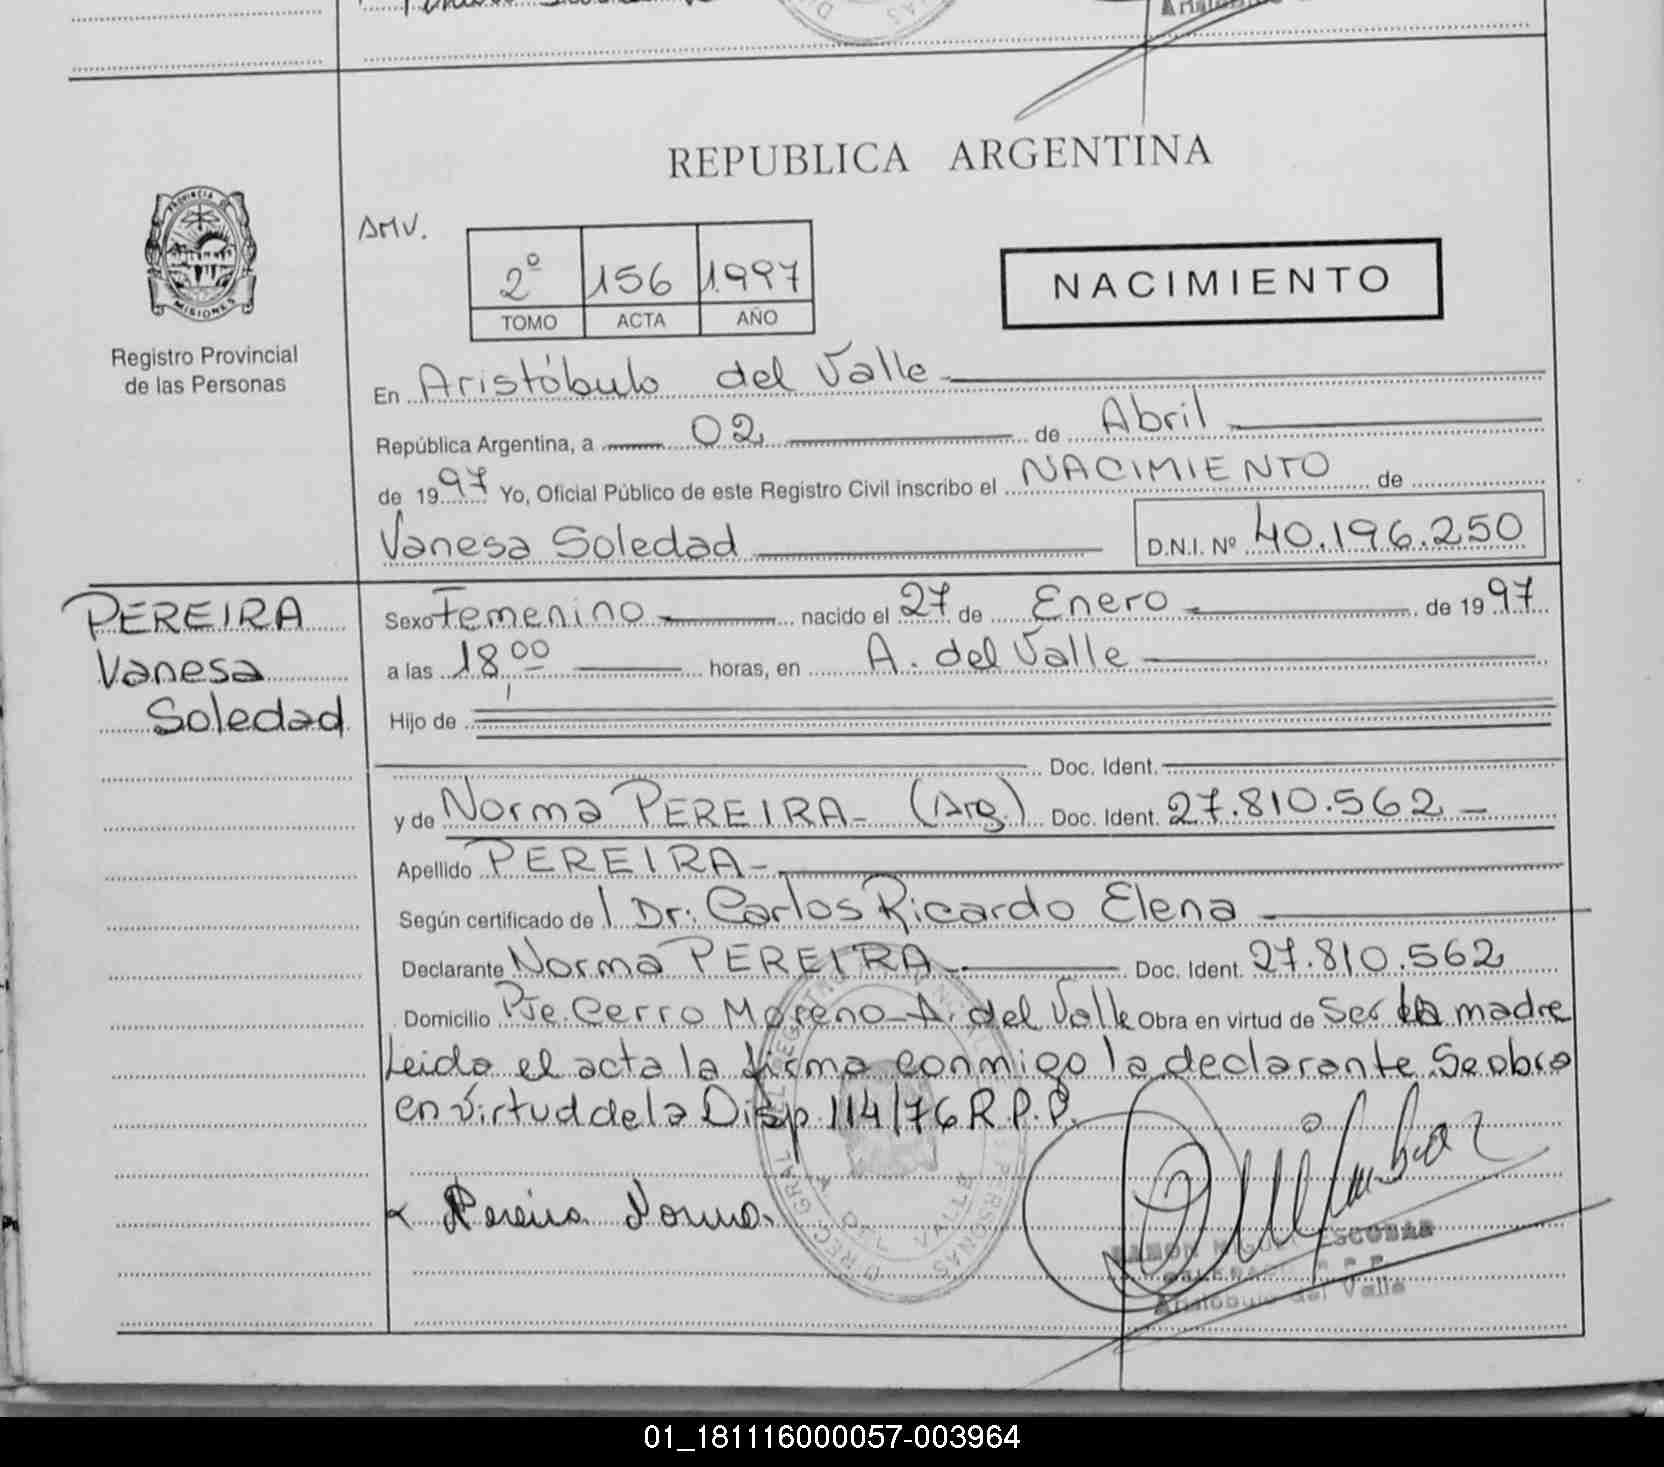 REPUBLICA ARGENTINA
PROVINCIA DE
MISIONES
Registro Provincial
de las Personas
AMV.
2º 156 1997
TOMO ACTA AÑO
NACIMIENTO
En Aristóbulo del Valle
República Argentina, a 02 de Abril
de 1997 Yo, Oficial Público de este Registro Civil inscribo el NACIMIENTO de
Vanesa Soledad D.N.I. Nº 40.196.250
PEREIRA
Vanesa
Soledad
Sexo Femenino nacido el 27 de Enero de 1997
a las 18,00 horas, en A. del Valle
Hijo de
Doc. Ident.
y de Norma PEREIRA - (Arg.) Doc. Ident. 27.810.562 -
Apellido PEREIRA -
Según certificado de l Dr: Carlos Ricardo Elena -
Declarante Norma PEREIRA - Doc. Ident. 27.810.562
Domicilio Pje. Cerro Moreno - A. del Valle Obra en virtud de Ser la madre
Leida el acta la firma conmigo la declarante. Se obra
en virtud de la Disp. 114/76 R.P.P.
Pereira Norma.
RAMON MIGUEL ESCOBAR
R.P.P.
Aristobulo del Valle
01_181116000057-003964